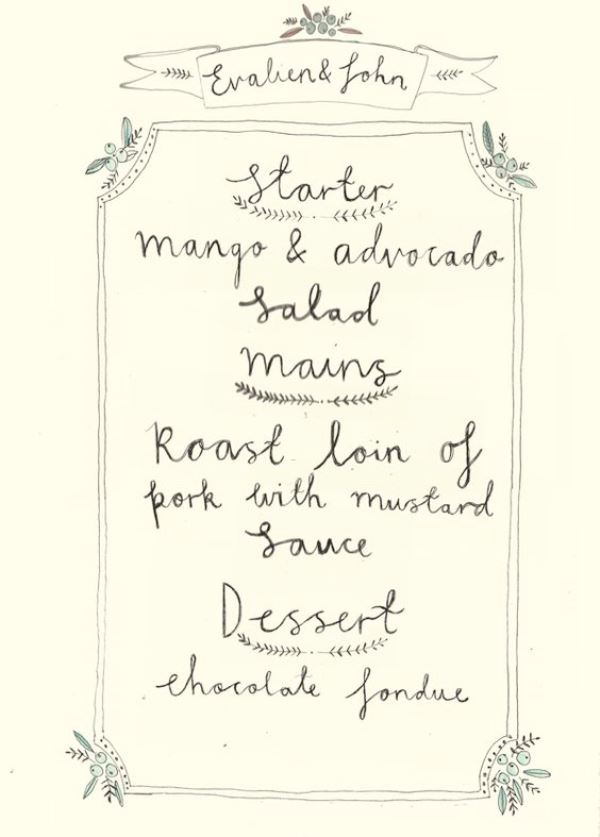 Evalien & John
Starter
mango & advocado
Salad
mains
Roast loin of
pork with mustard
Sauce
Dessert
chocolate fondue